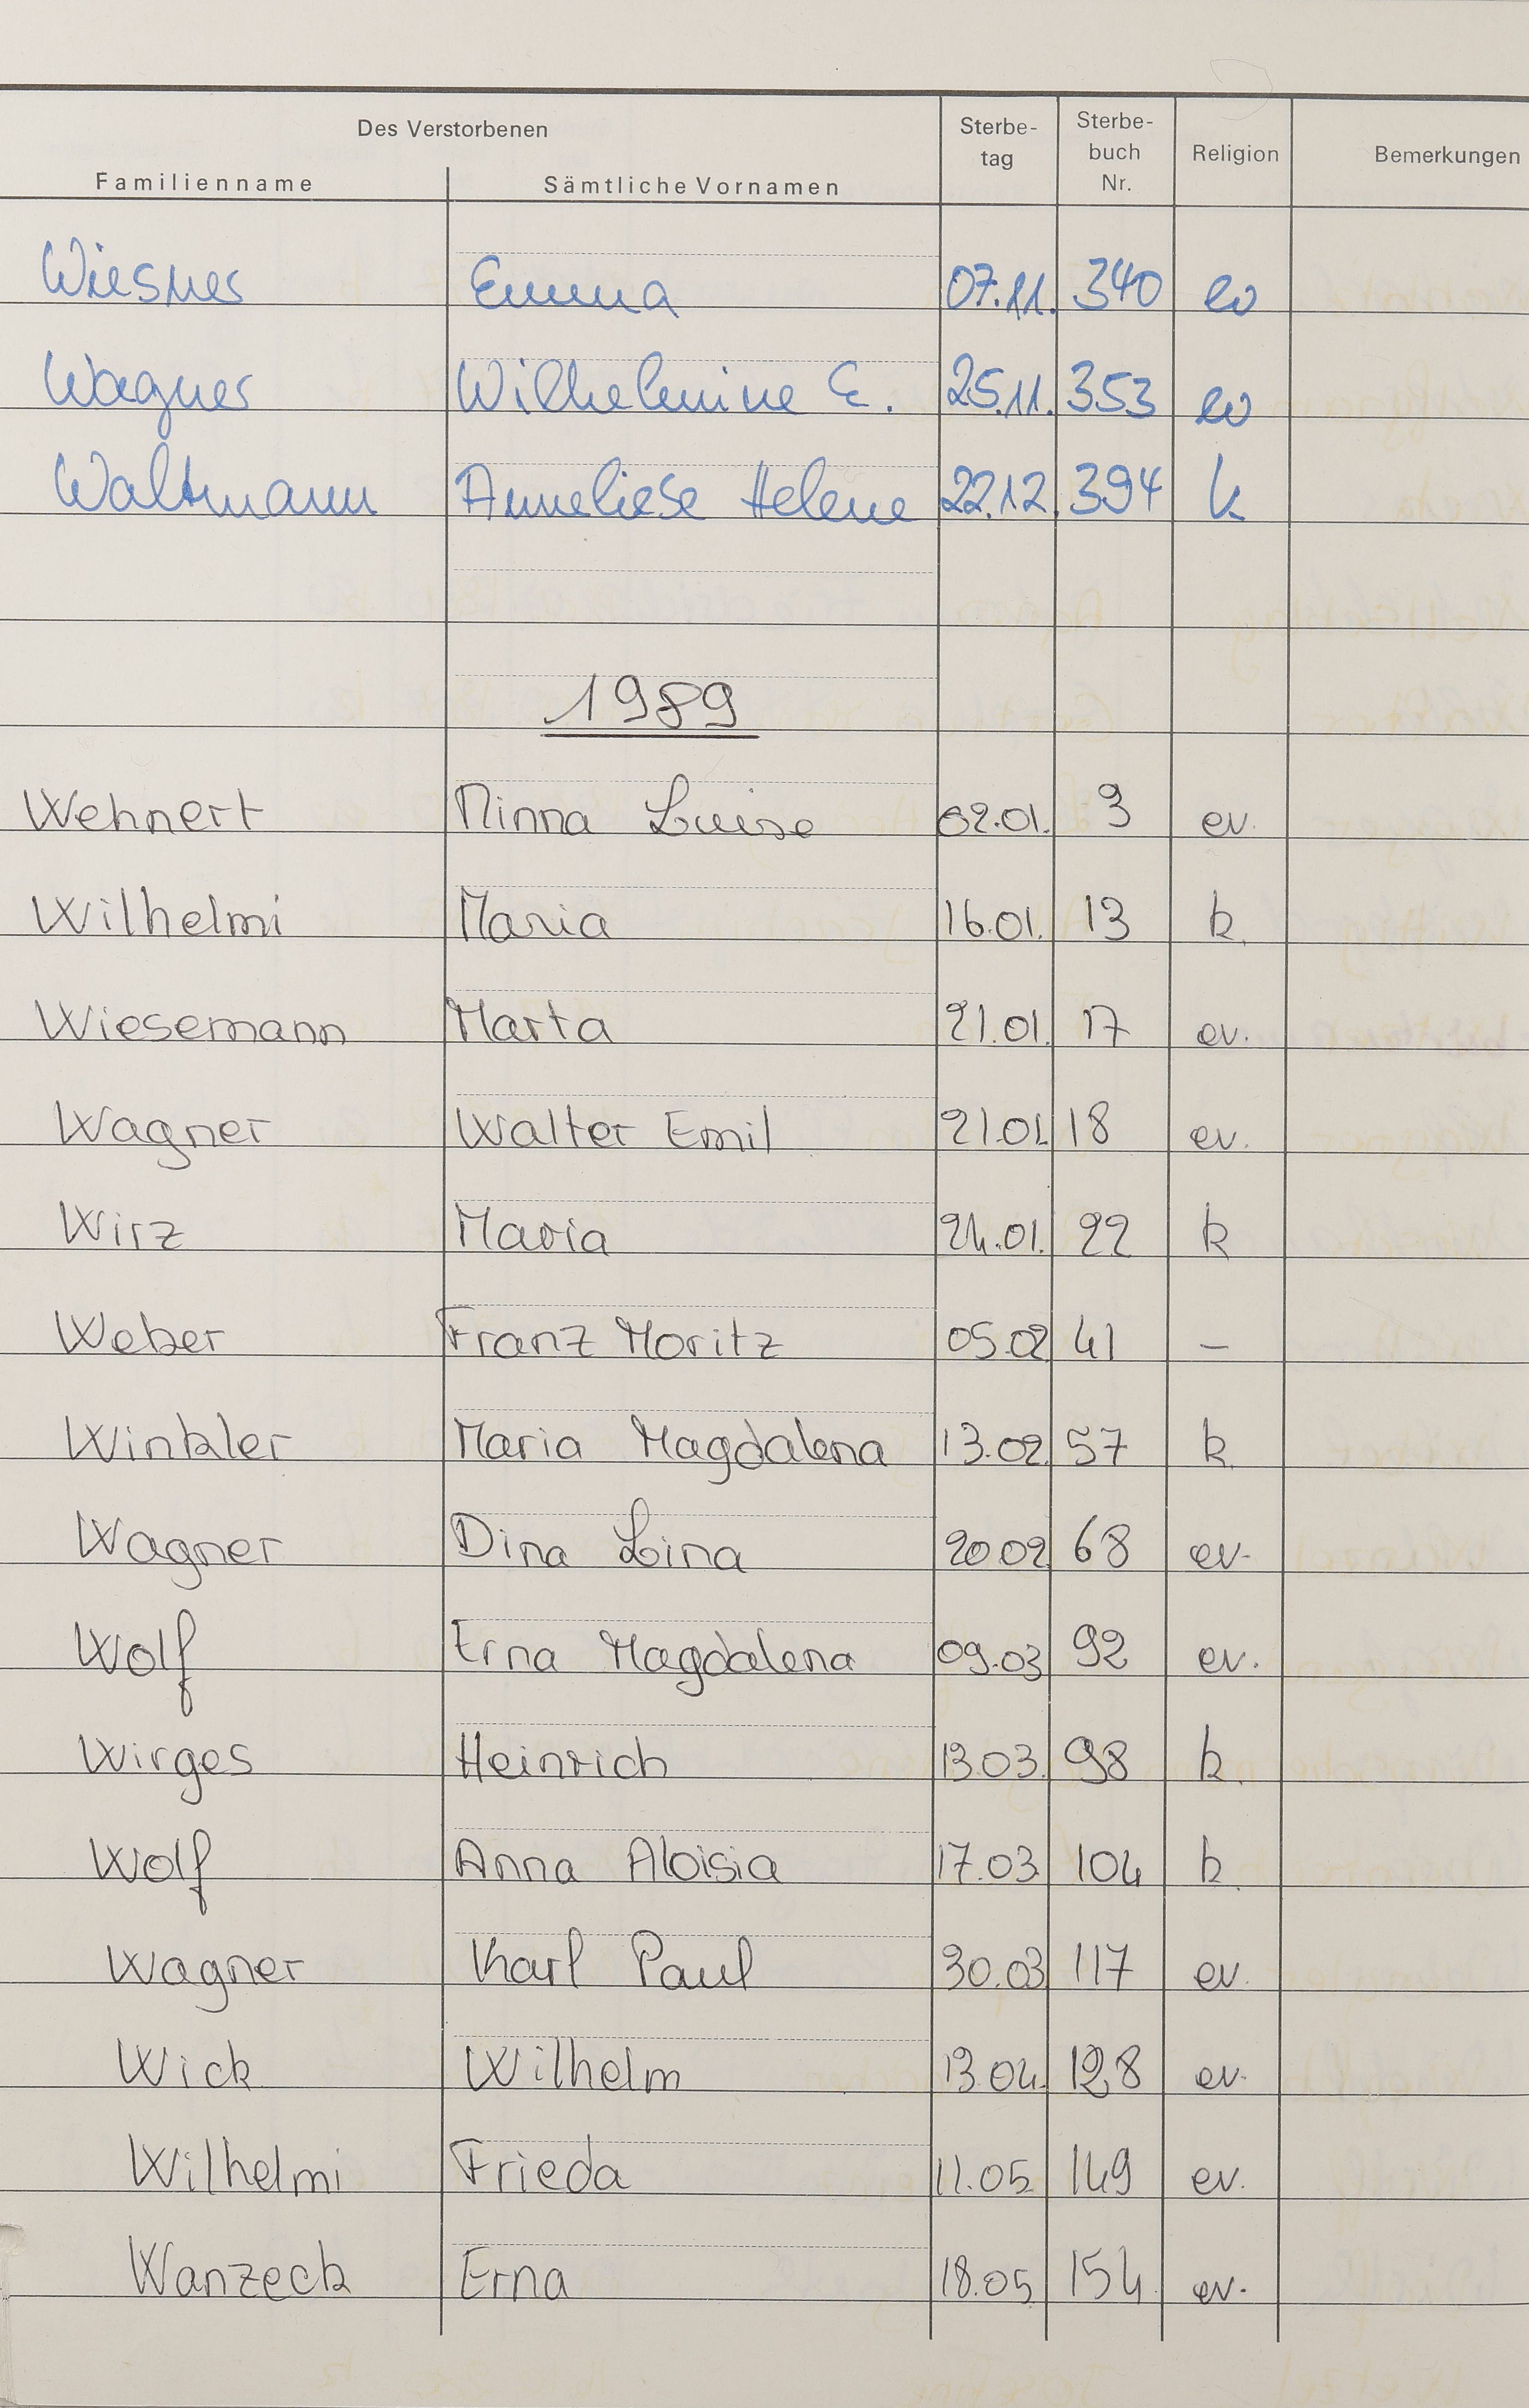 Des Verstorbenen
Familienname Sämtliche Vornamen Sterbe-tag Sterbe-buch Nr. Religion Bemerkungen
Wiesner Emma 07.11. 340 ev
Wagner Wilhelmine E. 25.11. 353 ev
Waltmann Anneliese Helene 22.12. 394 k
1989
Wehnert Minna Luise 02.01. 3 ev.
Wilhelmi Maria 16.01. 13 k.
Wiesemann Marta 21.01. 17 ev.
Wagner Walter Emil 21.01. 18 ev.
Wirz Maria 24.01. 22 k
Weber Franz Moritz 05.02 41 –
Winkler Maria Magdalena 13.02. 57 k.
Wagner Dina Lina 20.02 68 ev.
Wolf Erna Magdalena 09.03 92 ev.
Wirges Heinrich 13.03. 98 k.
Wolf Anna Aloisia 17.03 104 k.
Wagner Karl Paul 30.03 117 ev.
Wick Wilhelm 13.04. 128 ev.
Wilhelmi Frieda 11.05 149 ev.
Wanzeck Erna 18.05 154 ev.